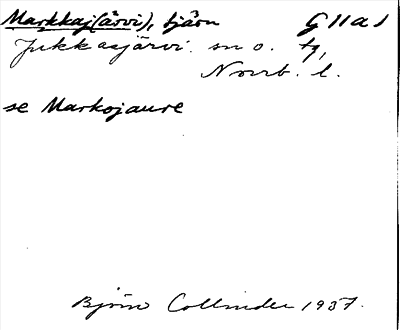 Markkaj(ärvi), tjärn G 11 a 1
Jukkasjärvi sn o. tg,
Norrb. l.
se Markojaure
Björn Collinder 1937.